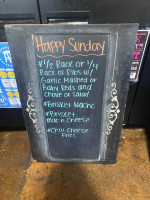 Happy Sunday
*1/2 Rack or 3/4
Rack of Ribs w/
Garlic Mashed or
Baby Reds and
choice of salad
*Brisket Nacho
*Brisket
mac n cheese
*Chili Cheese
Fries